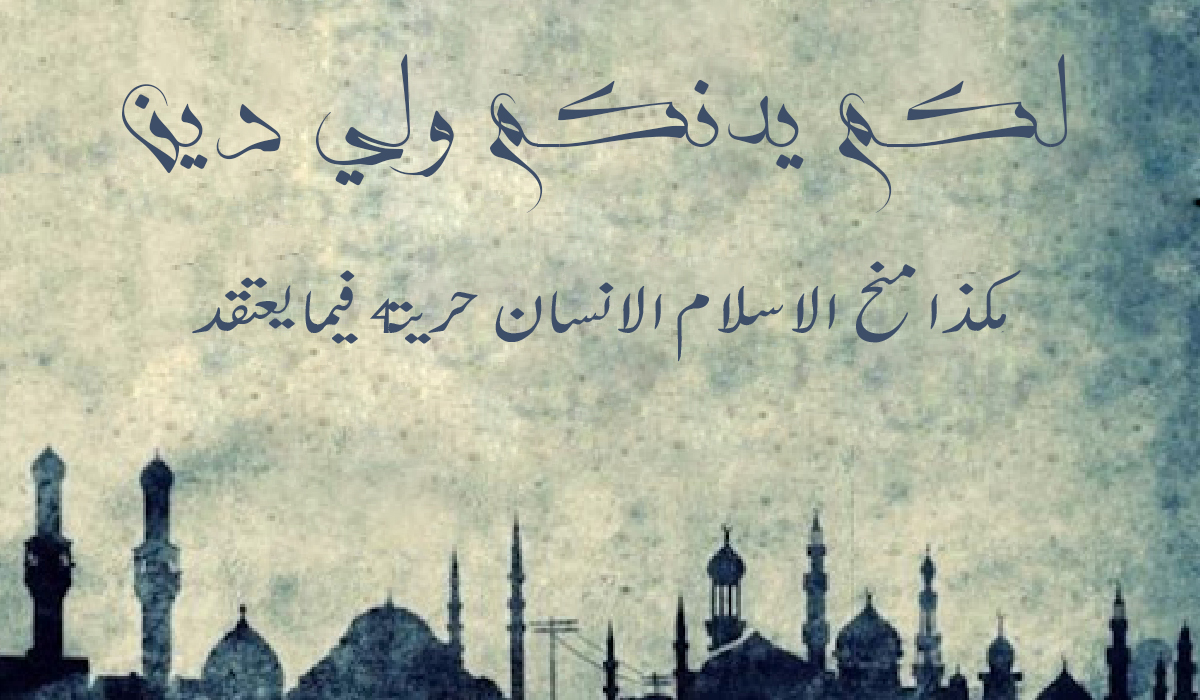 لكم يدنكم ولي دين
مكذا منح الاسلام الانسان حريته فيما يعتقد